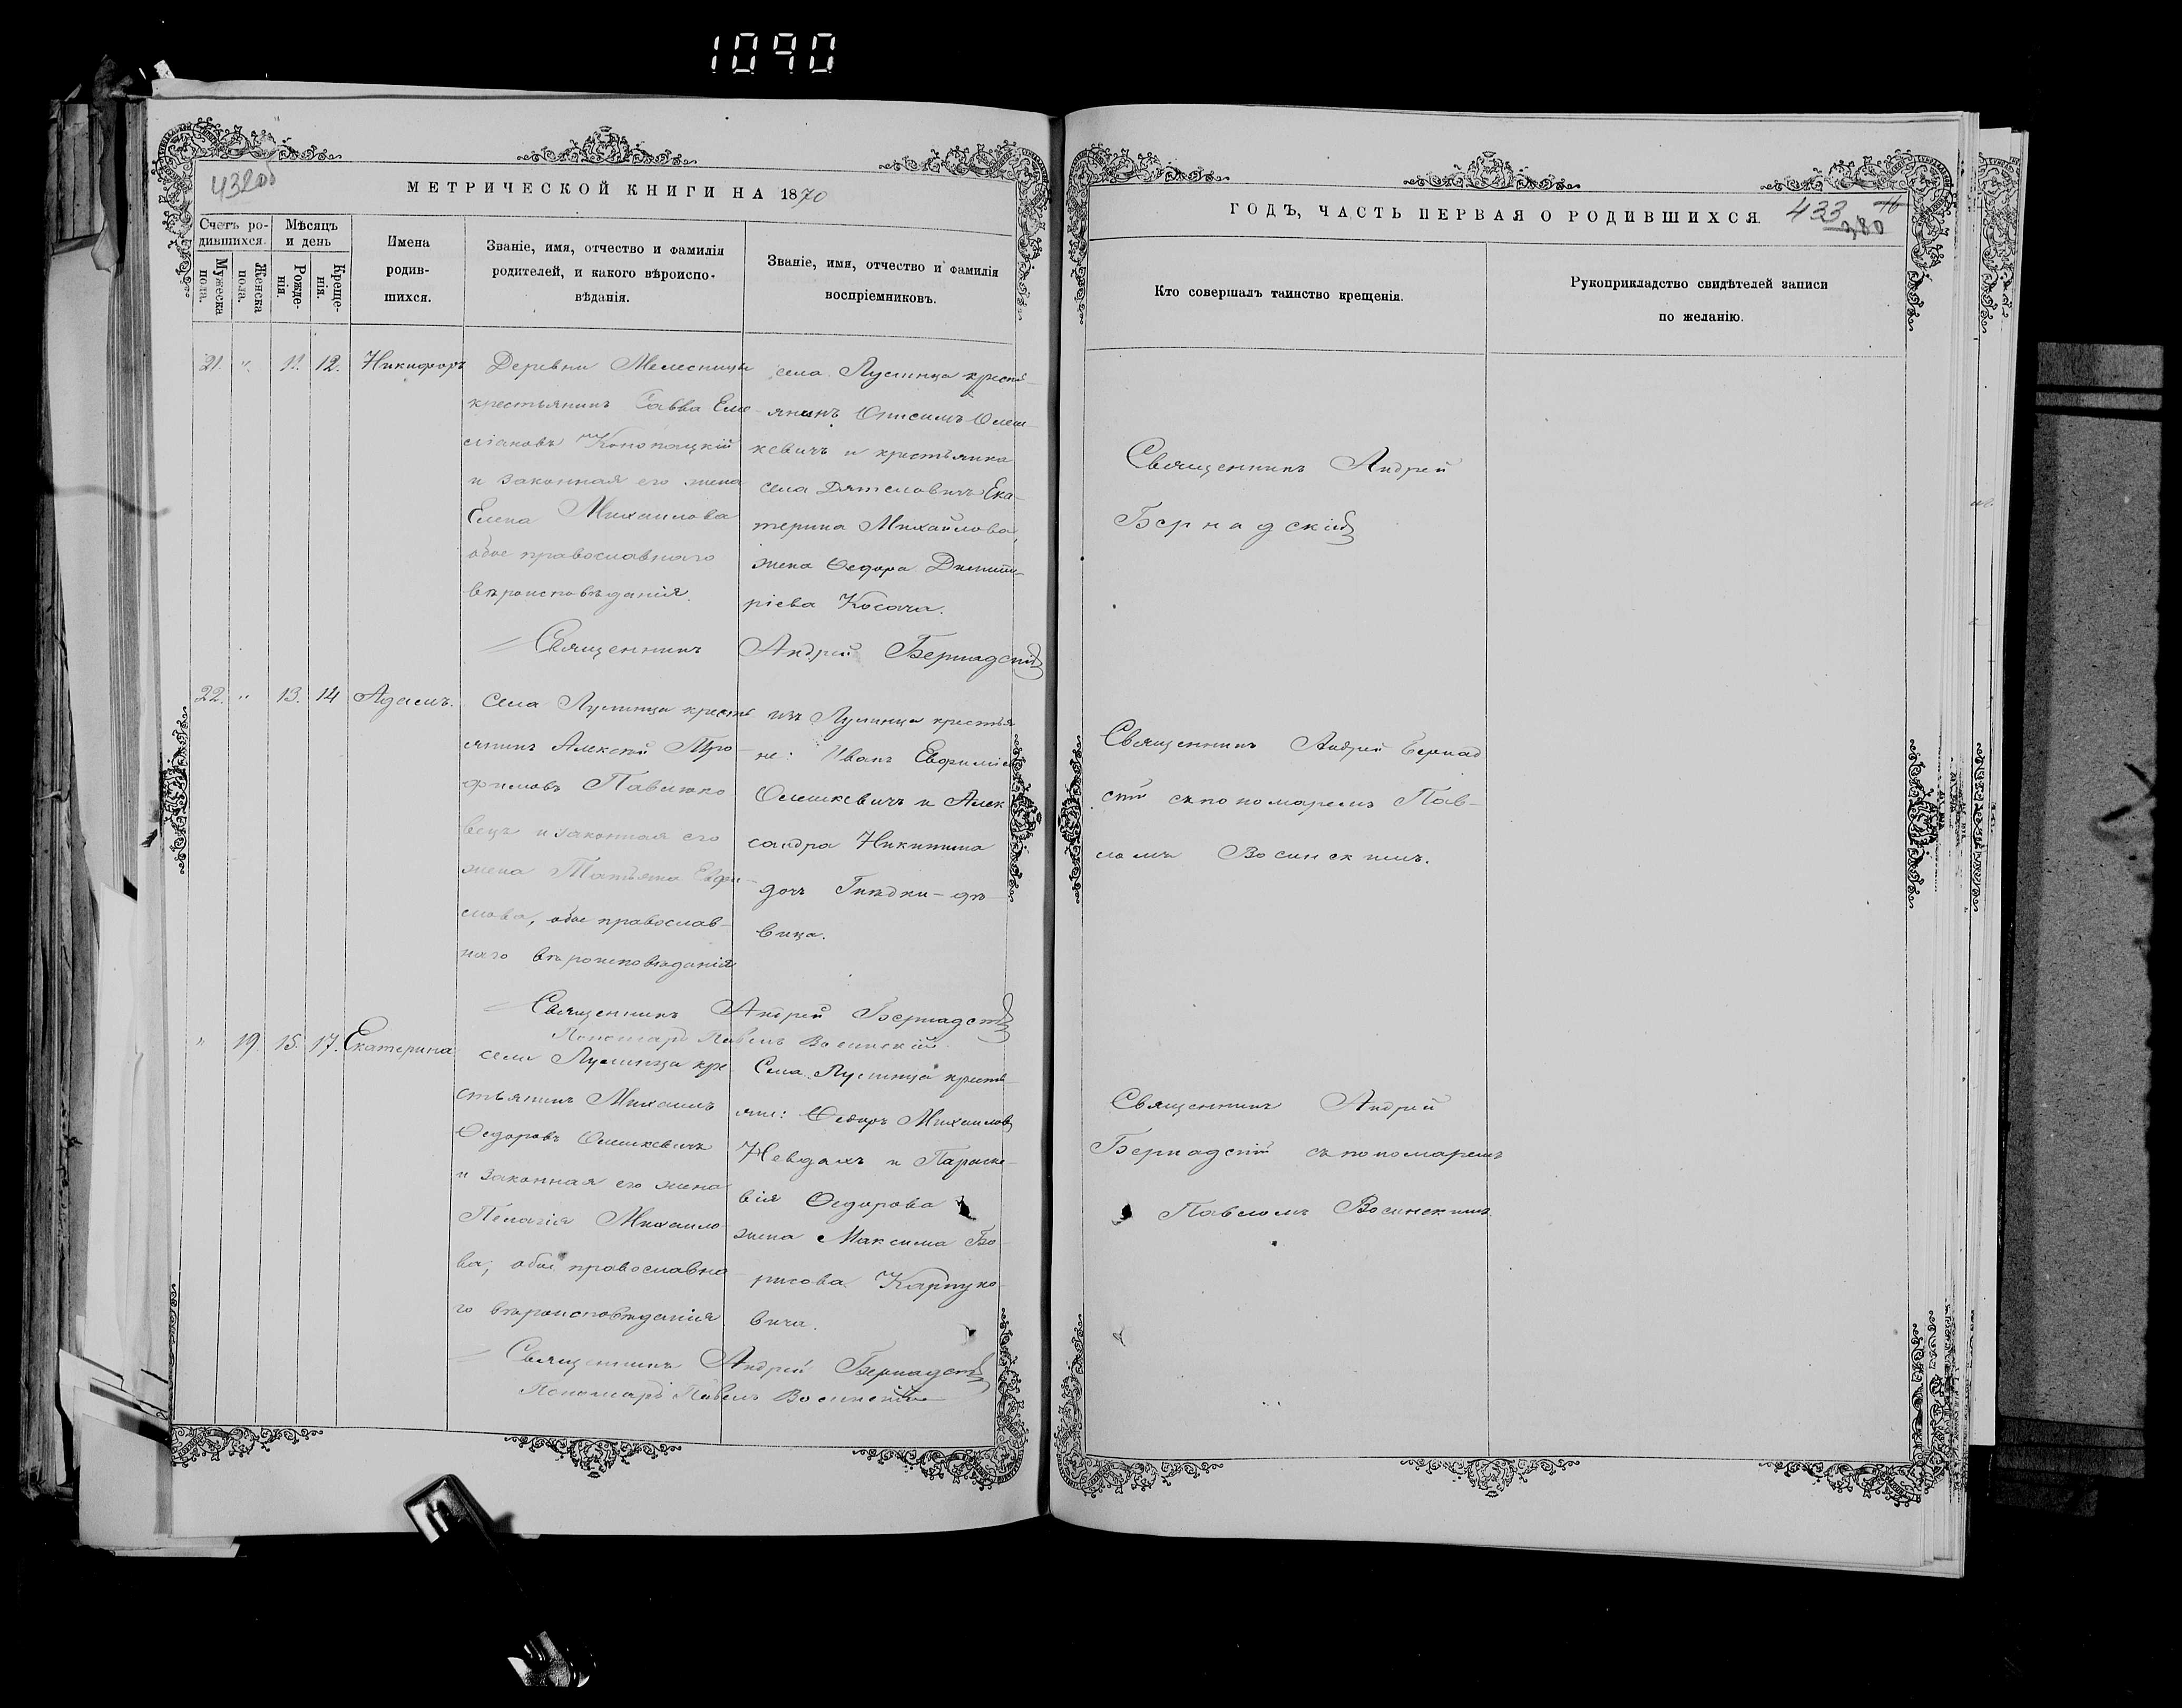 1090
432об
МЕТРИЧЕСКОЙ КНИГИ НА 1870
Счетъ ро-
дившихся.
Мужеска
пола.
Женска
пола.
Мѣсяцъ
и день
Рожде-
нія.
Креще-
нія.
Имена
родив-
шихся.
Званіе, имя, отчество и фамилія
родителей, и какого вѣроиспо-
вѣданія.
Званіе, имя, отчество и фамилія
воспріемниковъ.
21. " 11. 12. Никифоръ
Деревни Мелесницы
крестьянинъ Савва Еме
ліановъ Конопацкій
и законная его жена
Елена Михаилова
обое православнаго
вѣроисповѣданія.
села Лунинца крестъ-
янинъ Онисимъ Олеш-
кевичъ и крестьянка
села Дятеловичъ Ека-
терина Михайлова,
жена Ѳедора Димит-
ріева Косача.
Священникъ Андрей Бернадскій
22. " 13. 14 Адамъ.
Села Лунинца крестъ
янинъ Алексѣй Тро-
фимовъ Павлюко
вецъ и законная его
жена Татьяна
обое православ-
наго вѣроисповѣданія
изъ Лунинца крестья
не: Иванъ Евфиміев
Олешкевичъ и Алек
сандра Никитина
дочь Гнѣдки - дѣ-
вица.
Священникъ Андрей Бернадскій
Пономарь Павелъ Восинскій
" 19 15. 17. Екатерина
села Лунинца кре
стьянинъ Михаилъ
Ѳедоровъ Олешкевичъ
и законная его жена
Пелагія Михаило
ва, обое православна
го вѣроисповѣданія
Села Лунинца крестъ-
яне: Ѳедоръ Михаиловъ
Невдахъ и Параске-
вія Ѳедорова
жена Максима Бо-
рисова Карпуко-
вича.
Священникъ Андрей Бернадскій
Пономарь Павелъ Восинскій
ГОДЪ, ЧАСТЬ ПЕРВАЯ О РОДИВШИХСЯ.
433
380
Кто совершалъ таинство крещенія.
Рукоприкладство свидѣтелей записи
по желанію.
Священникъ Андрей
Бернадскій
Священникъ Андрей Бернад
скій съ пономаремъ Пав-
ломъ Восинскимъ.
Священникъ Андрей
Бернадскій съ пономаремъ
Павломъ Восинскимъ.